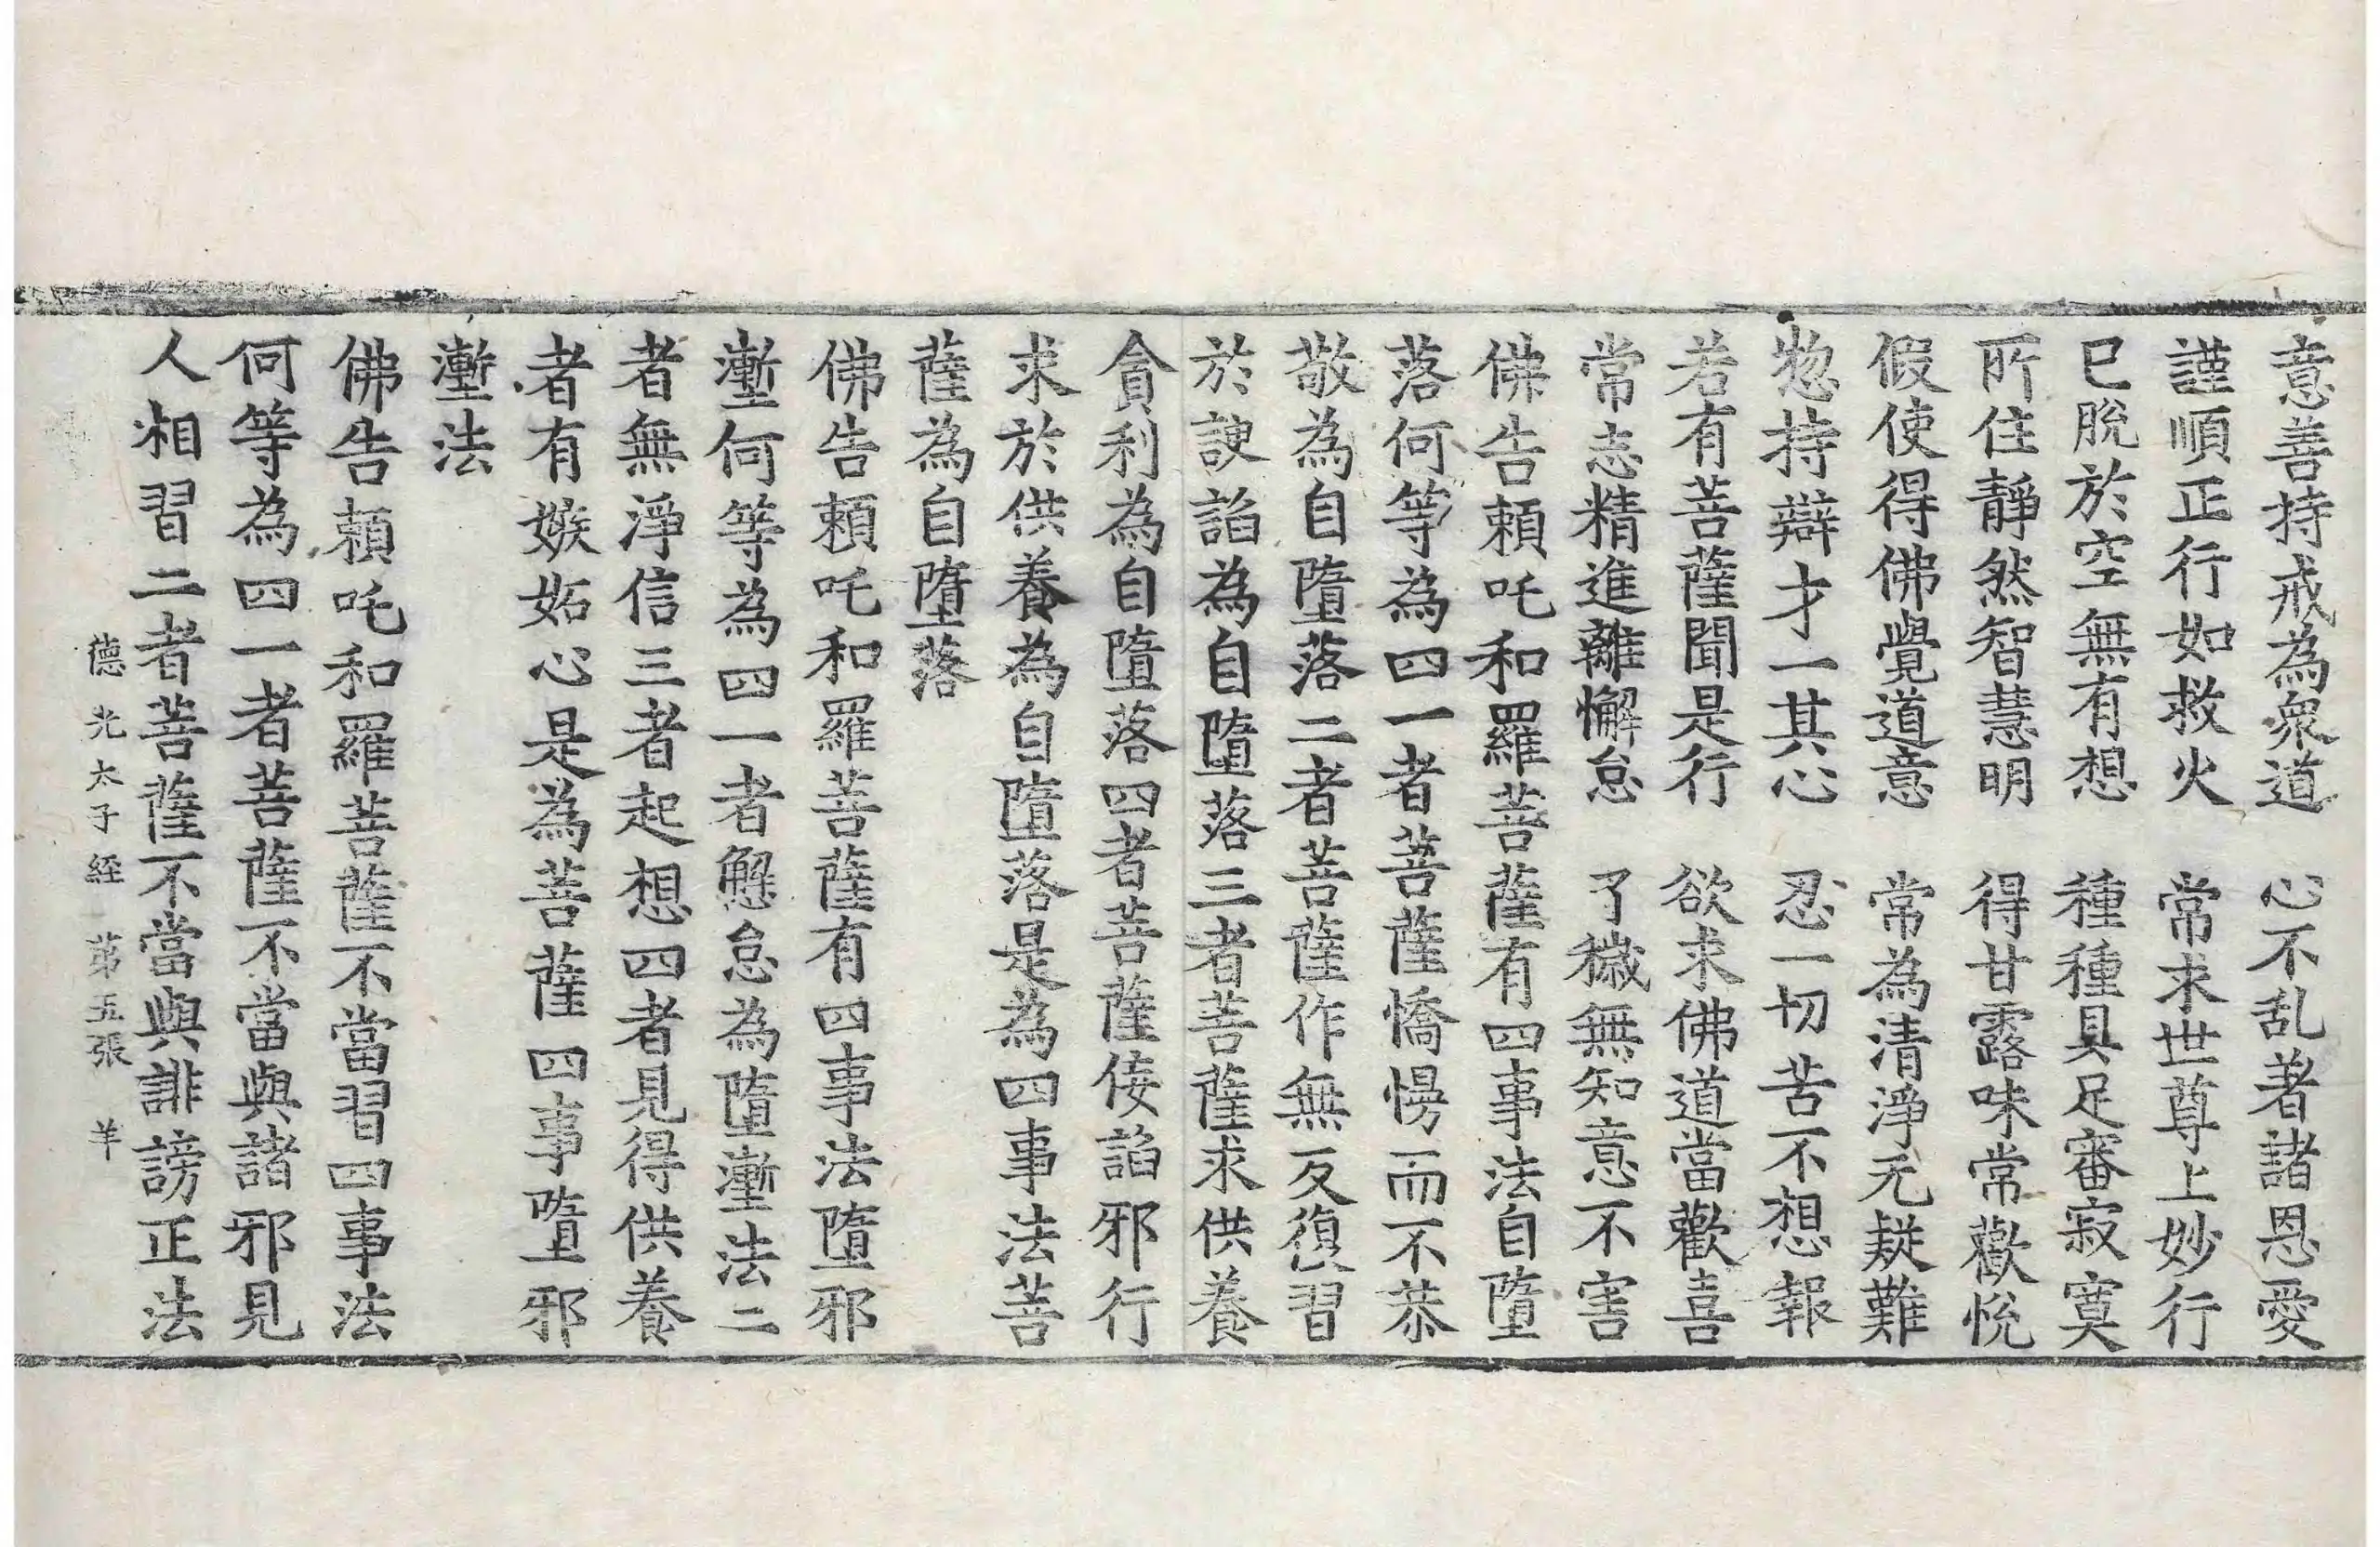 意善持戒為衆道　心不乱著諸恩愛
謹順正行如救火　常求世尊上妙行
已脫於空無有想　種種具足審寂寞
所住靜然智慧明　得甘露味常歡悅
假使得佛覺道意　常為清淨无疑難
惣持辯才一其心　忍一切苦不想報
若有菩薩聞是行　欲求佛道當歡喜
常志精進離懈怠　了穢無知意不害
佛告賴吒和羅菩薩有四事法自墮
落何等為四一者菩薩憍慢而不恭
敬為自墮落二者菩薩作無反復習
於諛諂為自墮落三者菩薩求供養
貪利為自墮落四者菩薩倿諂邪行
求於供養為自墮落是為四事法菩
薩為自墮落
佛告賴吒和羅菩薩有四事法墮邪
壍何等為四一者懈怠為墮壍法二
者無淨信三者起想四者見得供養
者有嫉妬心是為菩薩四事墮邪
壍法
佛告賴吒和羅菩薩不當習四事法
何等為四一者菩薩不當與諸邪見
人相習二者菩薩不當與誹謗正法
德光太子経　第五張　羊